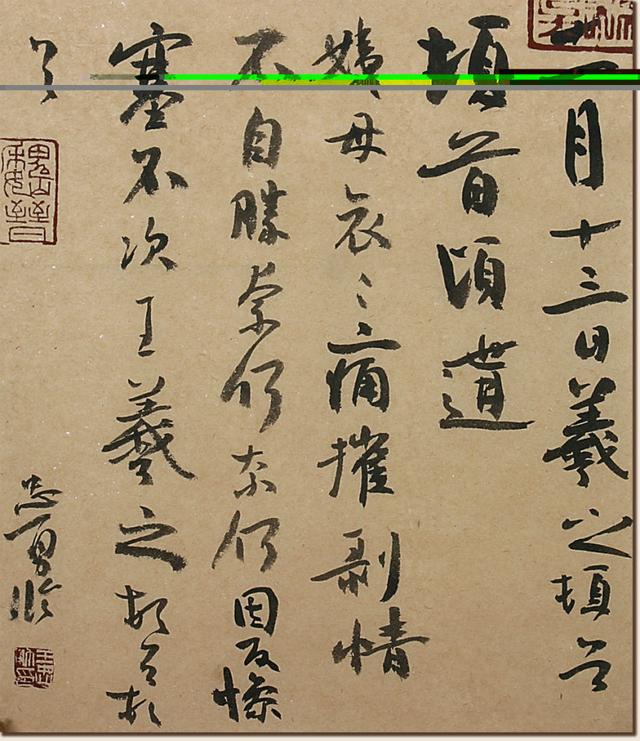 十一月十三日羲之頓首
頓首頃遘
姨母哀〻痛摧剝情
不自勝奈何奈何因反慘
塞不次王羲之頓首頓
首
忠勇临